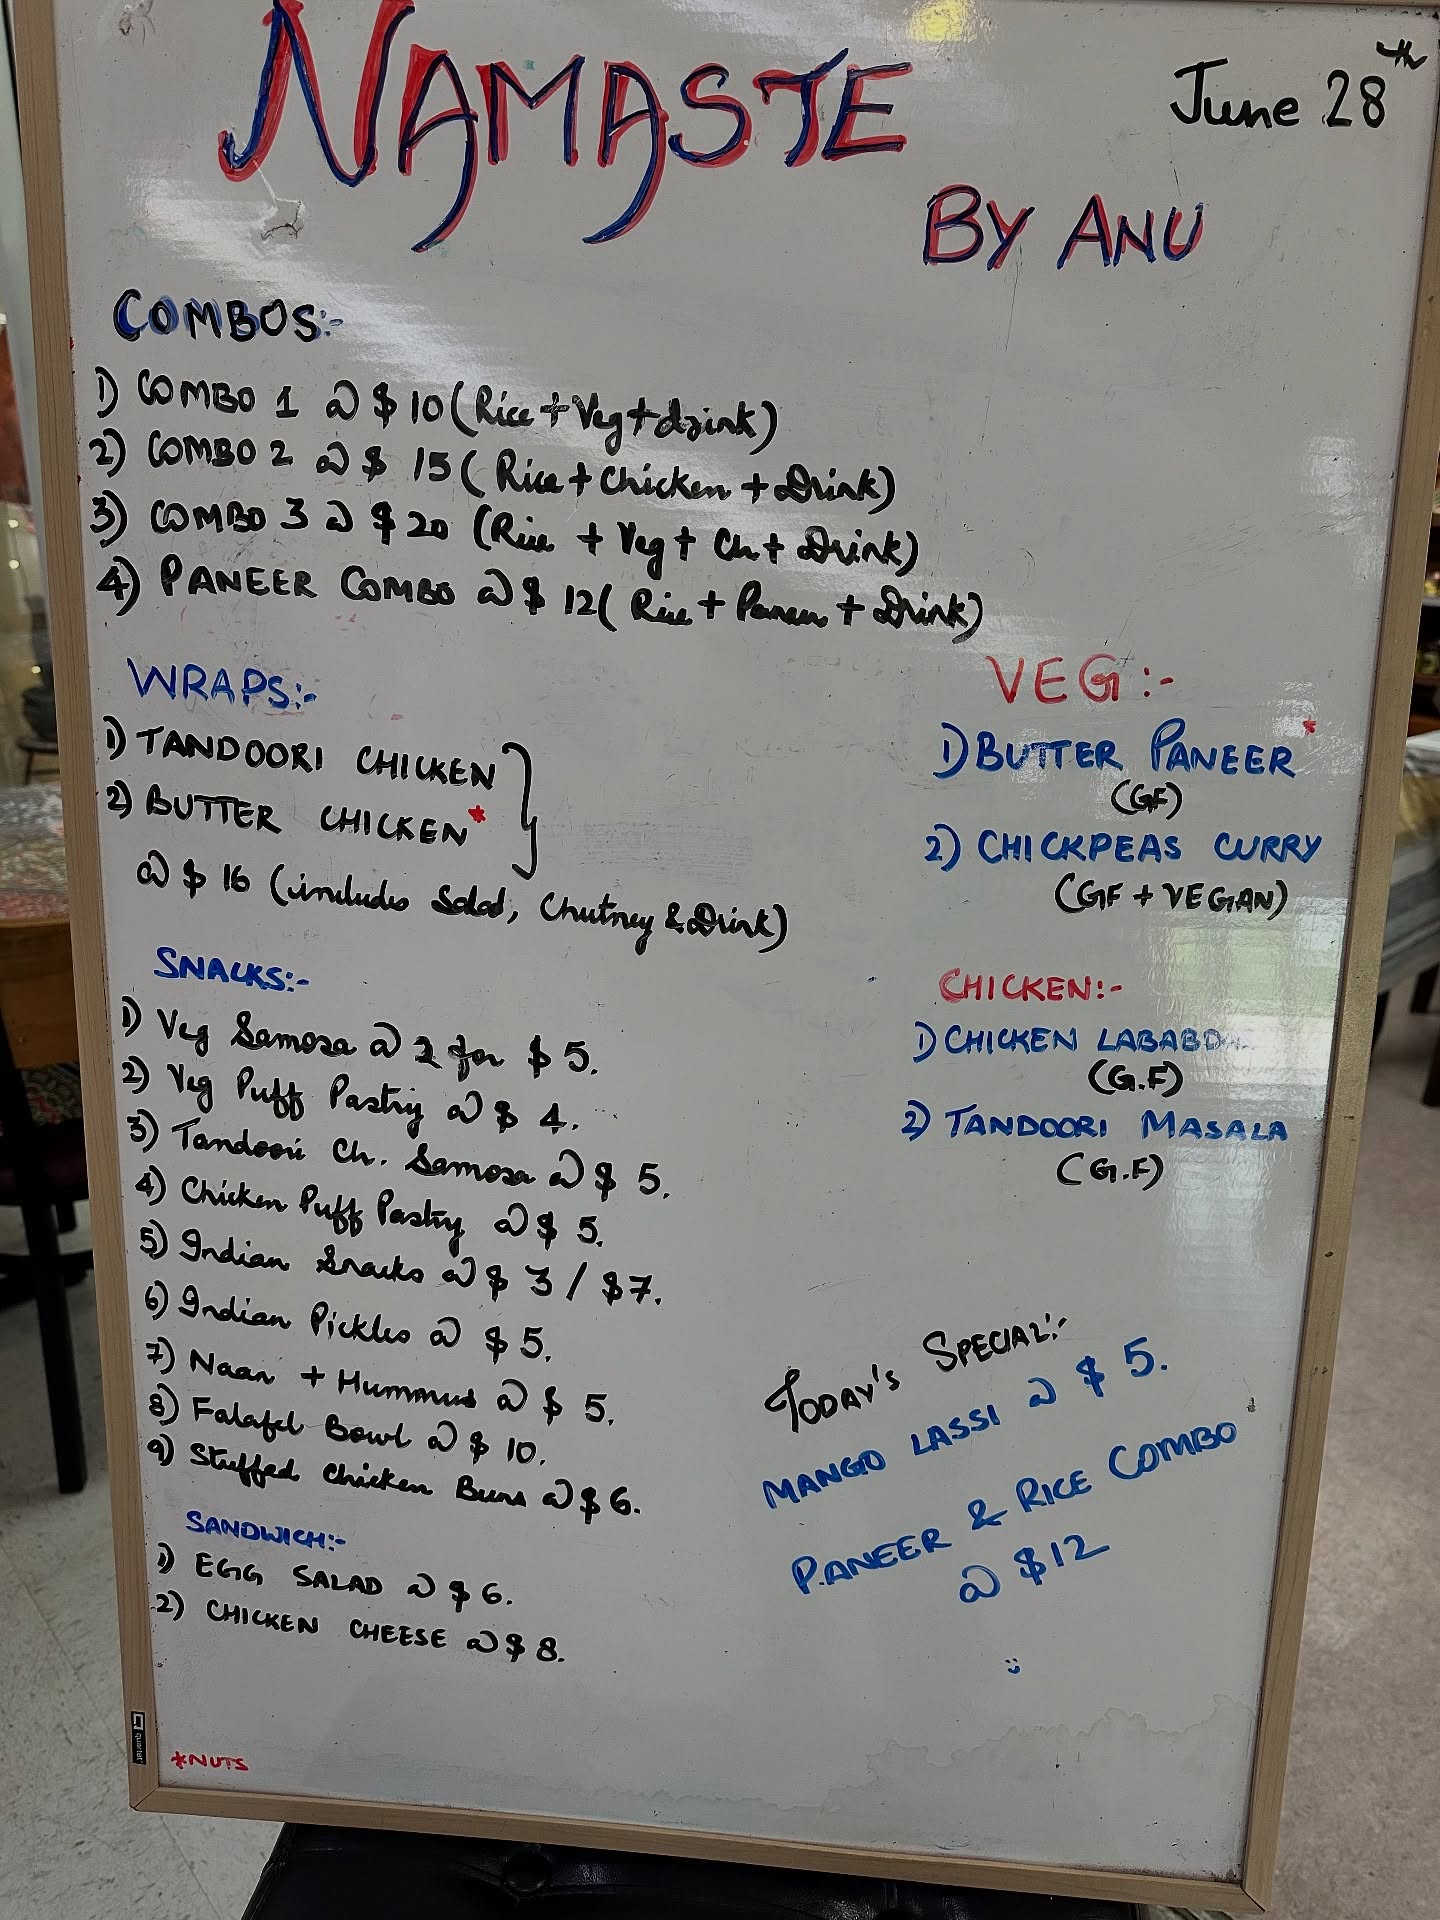 NAMASTE
June 28th
BY ANU
COMBOS:-
1) COMBO 1 @ $10 (Rice + Veg + drink)
2) COMBO 2 @ $ 15 (Rice + Chicken + Drink)
3) COMBO 3 @ $20 (Rice + Veg + Ch + Drink)
4) PANEER COMBO @ $ 12 (Rice + Paneer + Drink)
WRAPS:-
1) TANDOORI CHICKEN
2) BUTTER CHICKEN*
@ $ 16 (includes Salad, Chutney & Drink)
SNACKS:-
1) Veg Samosa @ 2 for $ 5.
2) Veg Puff Pastry @ $ 4.
3) Tandoori Ch. Samosa @ $ 5.
4) Chicken Puff Pastry @ $ 5.
5) Indian Snacks @ $ 3 / $7.
6) Indian Pickles @ $ 5.
7) Naan + Hummus @ $ 5.
8) Falafel Bowl @ $ 10.
9) Stuffed Chicken Buns @ $ 6.
SANDWICH:-
1) EGG SALAD @ $ 6.
2) CHICKEN CHEESE @ $ 8.
*NUTS
VEG:-
1) BUTTER PANEER*
(GF)
2) CHICKPEAS CURRY
(GF + VEGAN)
CHICKEN:-
1) CHICKEN
(G.F)
2) TANDOORI MASALA
(G.F)
TODAY'S SPECIAL:-
MANGO LASSI @ $ 5.
PANEER & RICE COMBO
@ $12
quartet